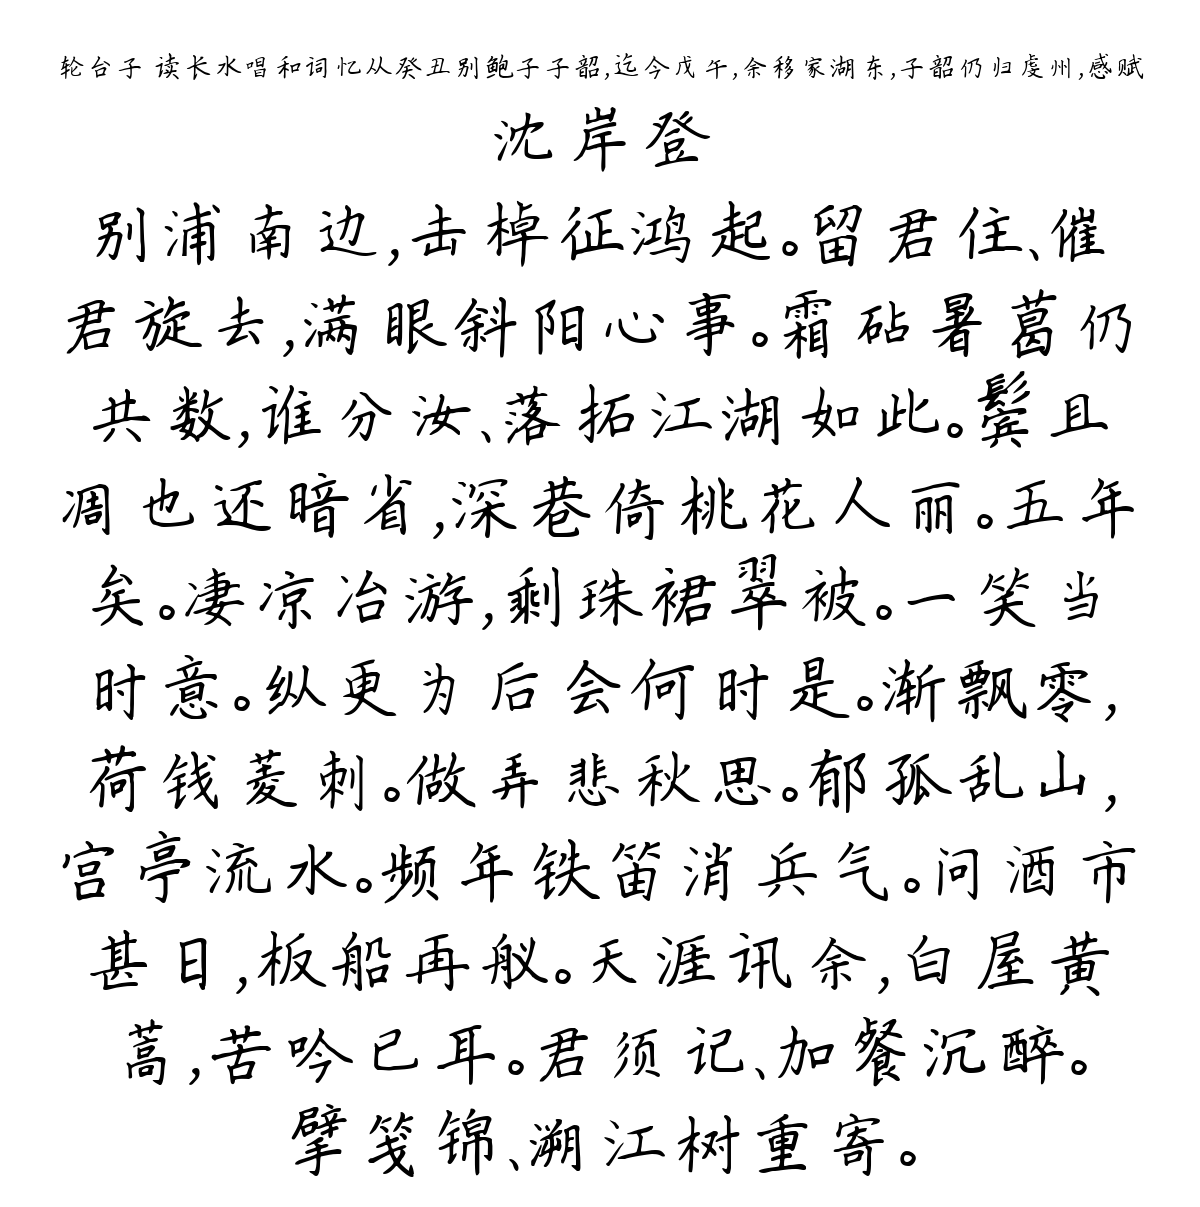 轮台子 读长水唱和词忆从癸丑别鲍子子韶,迄今戊午,余移家湖东,子韶仍归虔州,感赋
沈岸登
别浦南边,击棹征鸿起。留君住、催
君旋去,满眼斜阳心事。霜砧暑葛仍
共数,谁分汝、落拓江湖如此。鬓且
凋也还暗省,深巷倚桃花人丽。五年
矣。凄凉冶游,剩珠裙翠被。一笑当
时意。纵更为后会何时是。渐飘零,
荷钱菱刺。做弄悲秋思。郁孤乱山,
宫亭流水。频年铁笛消兵气。问酒市
甚日,板船再舣。天涯讯余,白屋黄
蒿,苦吟已耳。君须记、加餐沉醉。
擘笺锦、溯江树重寄。